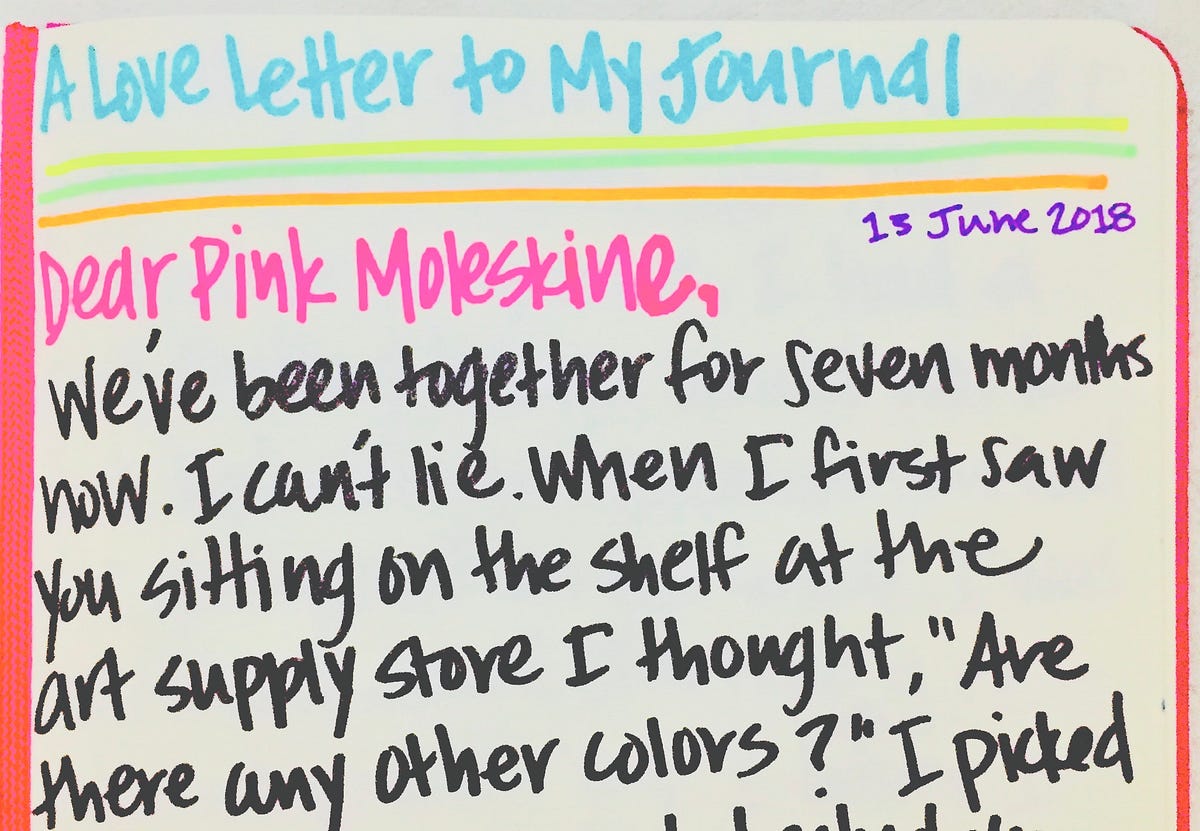 A Love Letter to My Journal
13 June 2018
Dear Pink Moleskine,
We've been together for seven months
now. I can't lie. When I first saw
you sitting on the shelf at the
art supply store I thought, "Are
there any other colors?" I picked